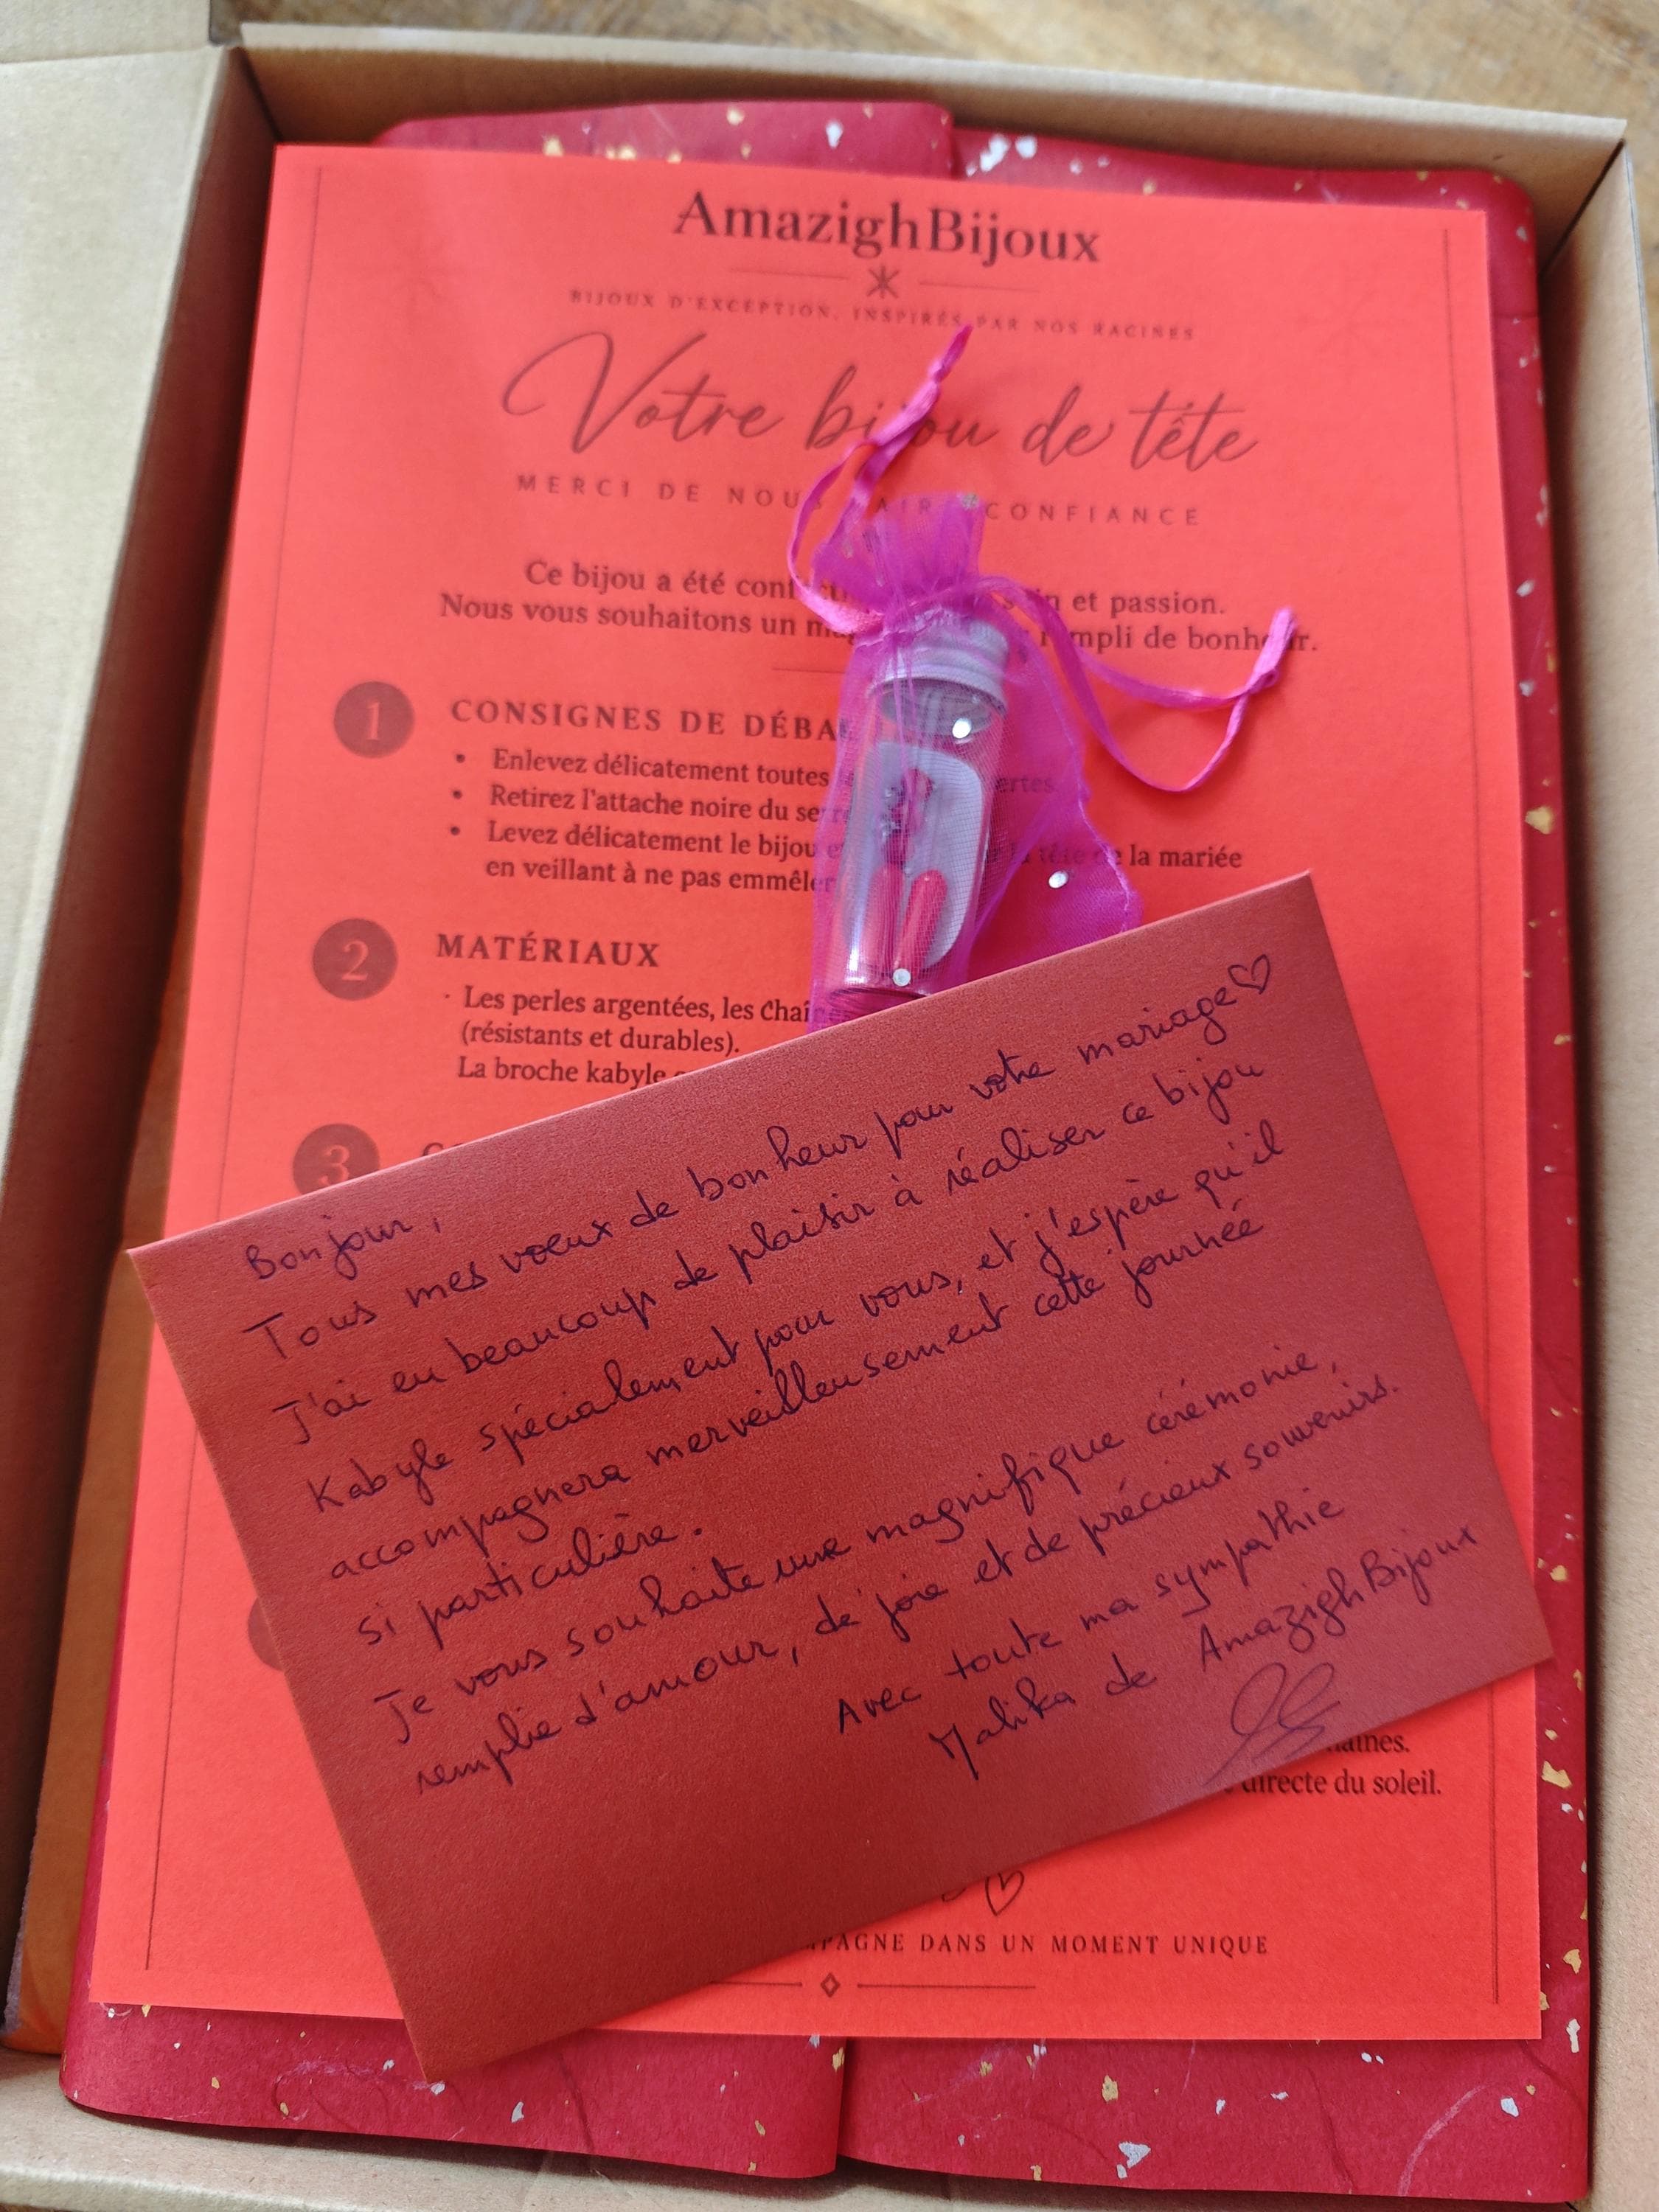 AmazighBijoux
BIJOUX D'EXCEPTION, INSPIRÉS PAR NOS RACINES
Votre bijou de tête
MERCI DE NOUS CONFIANCE
Ce bijou a été et passion.
Nous vous souhaitons un rempli de bonheur.
1 CONSIGNES DE
Enlevez délicatement toutes
Retirez l'attache noire du
Levez délicatement le bijou la tête de la mariée
en veillant à ne pas emmêler
2 MATÉRIAUX
Les perles argentées, les
(résistants et durables).
La broche kabyle
3
Bonjour,
Tous mes voeux de bonheur pour votre mariage♡
J'ai eu beaucoup de plaisir à réaliser ce bijou
Kabyle spécialement pour vous, et j'espère qu'il
accompagnera merveilleusement cette journée
si particulière.
Je vous souhaite une magnifique cérémonie,
remplie d'amour, de joie et de précieux souvenirs.
Avec toute ma sympathie
Malika de AmazighBijoux
directe du soleil.
DANS UN MOMENT UNIQUE